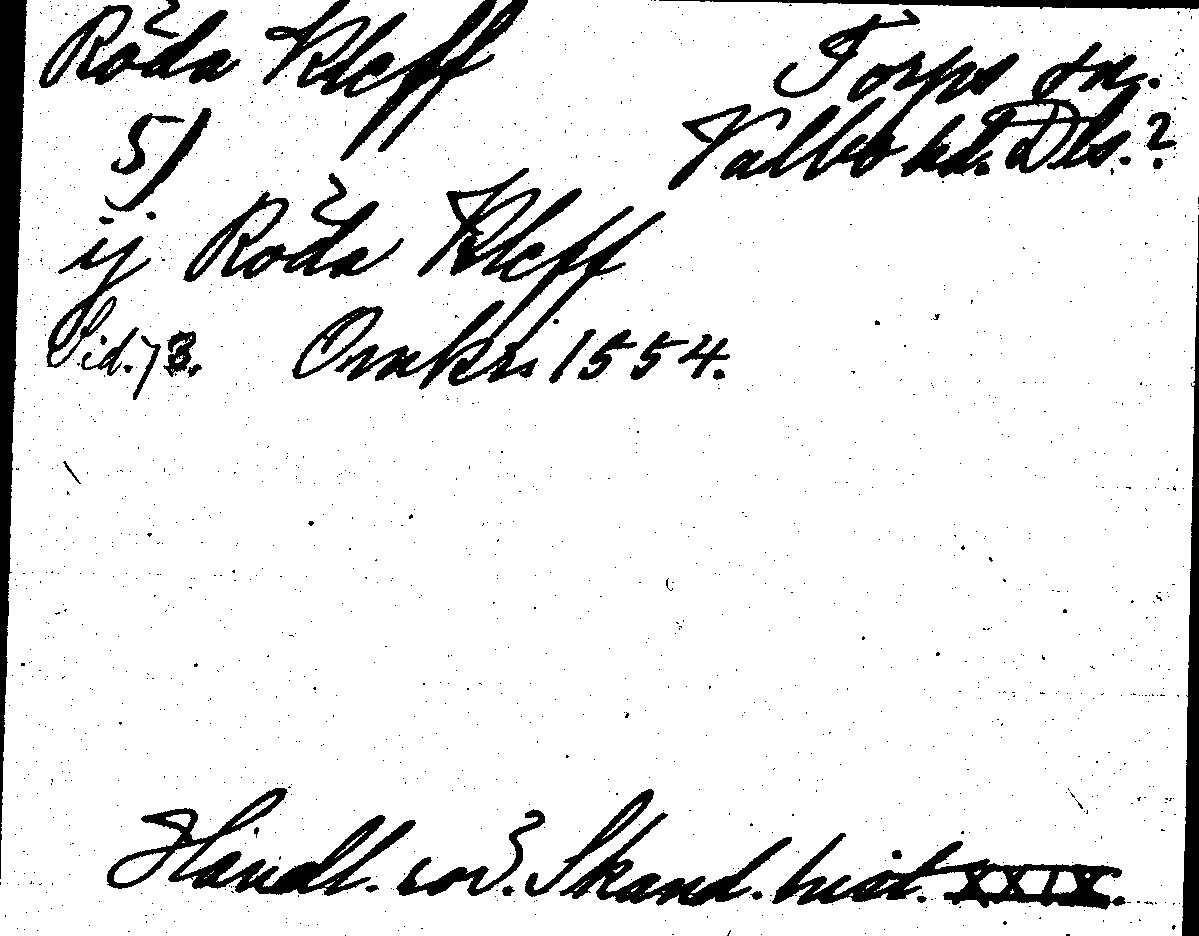 Röda Kleff
Torps sn.
5)
Valbo hd. Dls.?
ij Röda Kleff
Sid. 73. Omkr. 1554.
Handl. rör. Skand. hist. XXIX.